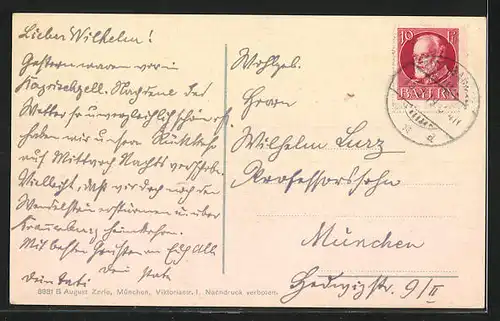 Lieber Wilhelm!
Gestern waren wir in
Bayrischzell. Nachdem das
Wetter so unvergleichlich schön ist
haben wir unsere Rückkehr
auf Mittwoch Nachts verschob.
Vielleicht, daß wir doch noch den
Wendelstein erstürmen u. über
heimkehren.
Mit besten Grüssen an Euch Alle
Dein
Wohlgeb.
Herrn
Wilhelm Lurz
Professorssohn
München
Hedwigstr. 9/II
10 Pf
BAYERN
8991 B August Zerle, München, Viktoriastr. 1. Nachdruck verboten.